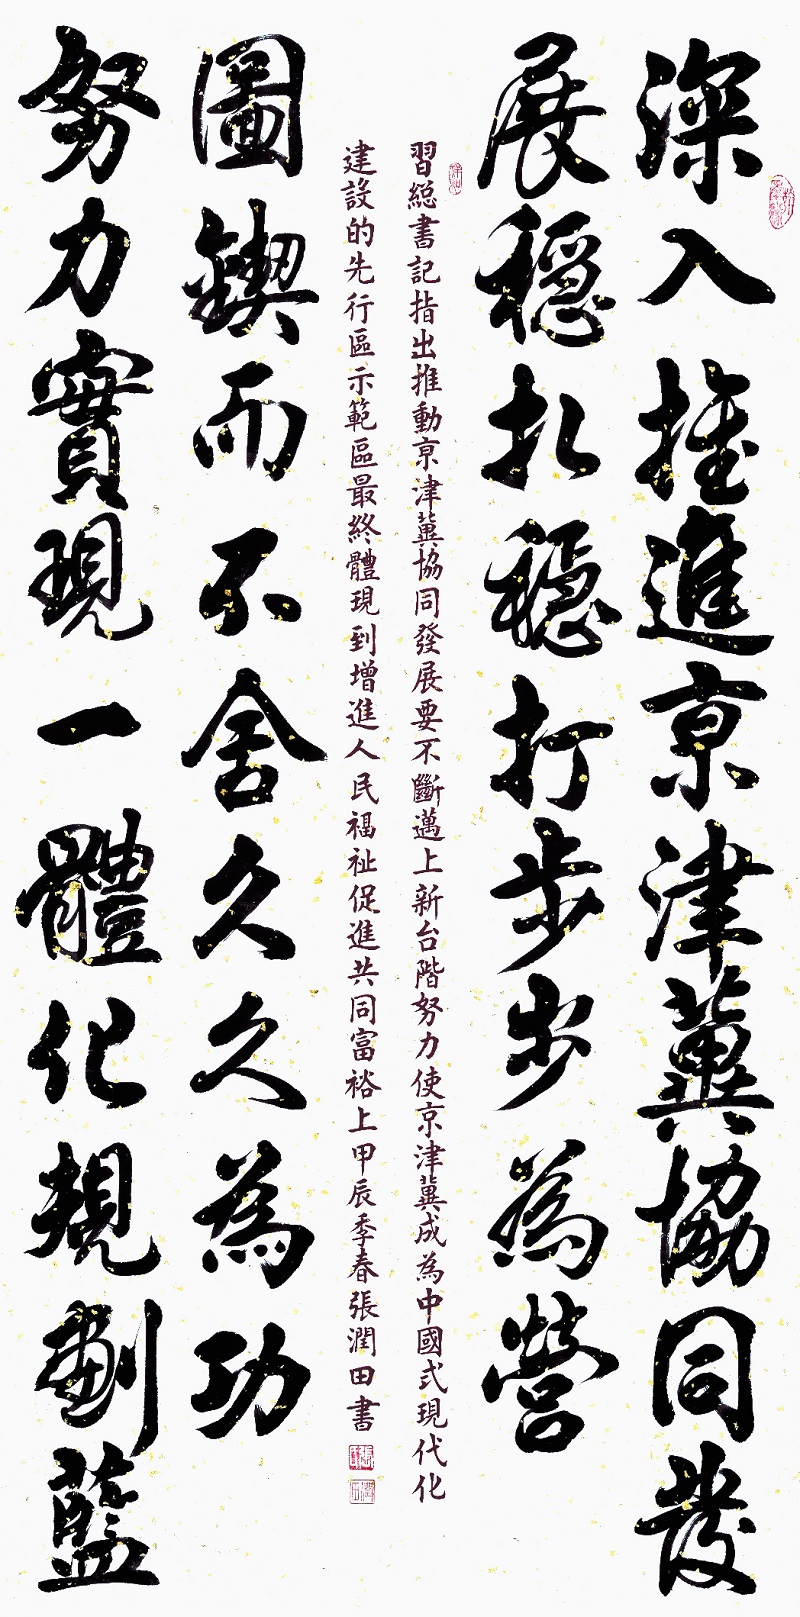 深入推進京津冀協同發
展穩扎穩打步步為營
努力實現一體化規劃藍
圖鍥而不舍久久為功
習総書記指出推動京津冀協同發展要不斷邁上新台階努力使京津冀成為中國式現代化
建設的先行區示範區最終體現到增進人民福祉促進共同富裕上甲辰季春張潤田書